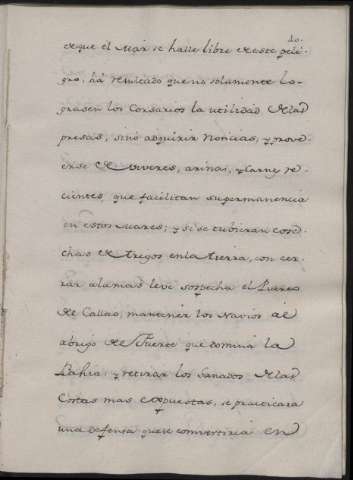 40.
deque el Mar se halle libre de este peli-
gro, há resultado que no solamente lo-
grasen los Corsarios la utilidad de las
presas, sino adquirir noticias, y prove-
erse de viveres, arinas, y Carne re-
cientes que facilitan su permanencia
en estos mares; y si se tubieran cose-
chas de trigos en la tierra, con cer-
rar a la mas leve sospecha el Puerto
de Callao; mantener los Navios al
abrigo de Fuerte que domina la
Bahia y retirar los Ganados de las
Costas mas expuestas, se practicara
una defensa que se convirtiria en